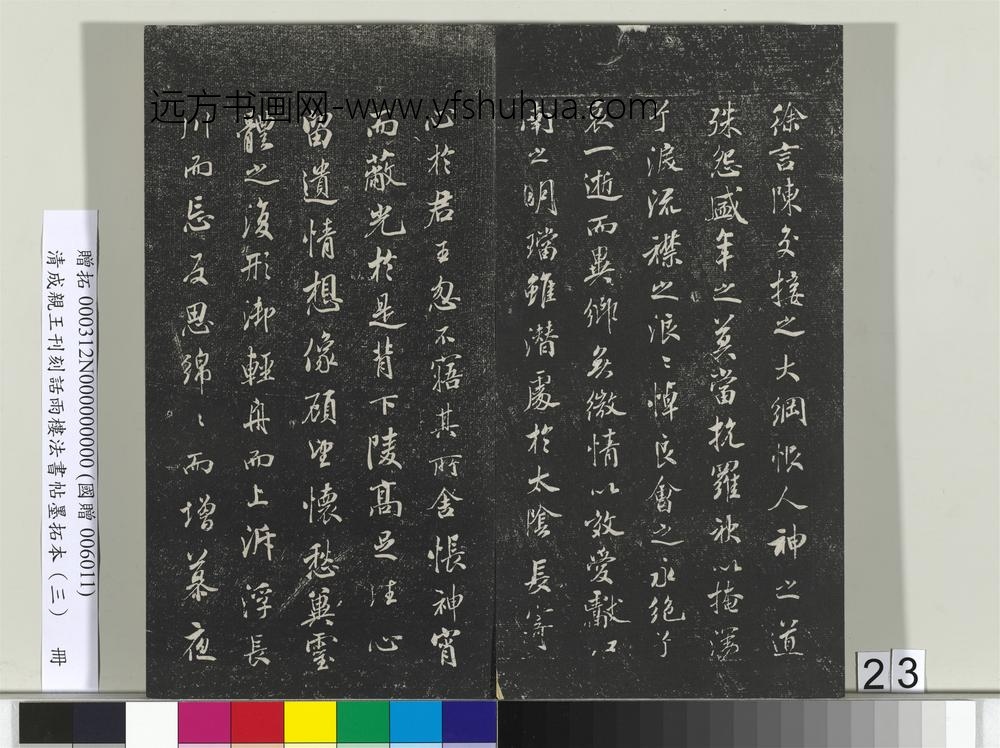 远方书画网-www.yfshuhua.com
徐言陳交接之大綱恨人神之道
殊怨盛年之莫當抗羅袂以掩涕
兮淚流襟之浪〻悼良會之永絶兮
哀一逝而異鄉無微情以效愛獻江
南之明璫雖潛處於太陰長寄
心於君王忽不寤其所舍悵神宵
而蔽光於是背下陵高足往心
留遺情想像顧望懷愁冀靈
體之復形御輕舟而上泝浮長
川而忘反思綿〻而增慕夜
贈拓 000312N000000000 (國贈 006011)
清成親王刊刻話雨樓法書帖墨拓本（三） 冊
23